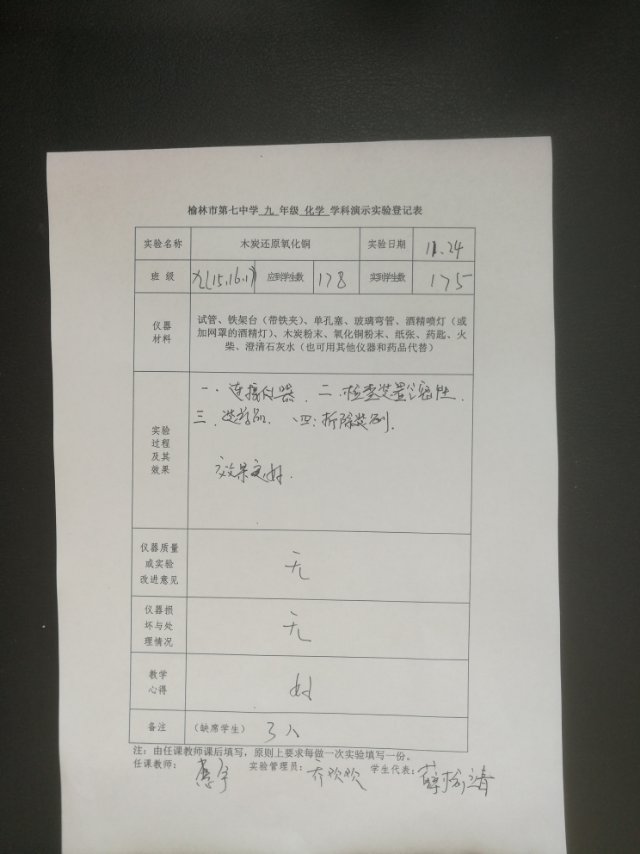 榆林市第七中学 九 年级 化学 学科演示实验登记表
实验名称 木炭还原氧化铜 实验日期 11.24
班 级 九(15.16.17) 应到学生数 178 实到学生数 175
仪器材料
试管、铁架台（带铁夹）、单孔塞、玻璃弯管、酒精喷灯（或
加网罩的酒精灯）、木炭粉末、氧化铜粉末、纸张、药匙、火
柴、澄清石灰水（也可用其他仪器和药品代替）
实验
过程
及其
效果
一、连接仪器 二、检查装置气密性.
三、装药品. 四: 拆除装置.
效果良好.
仪器质量
或实验
改进意见
无
仪器报
坏与处
理情况
无
教学
心得
好
备注 （缺席学生） 3人
注：由任课教师课后填写，原则上要求每做一次实验填写一份。
任课教师： 实验管理员： 欢欢 学生代表： 薛